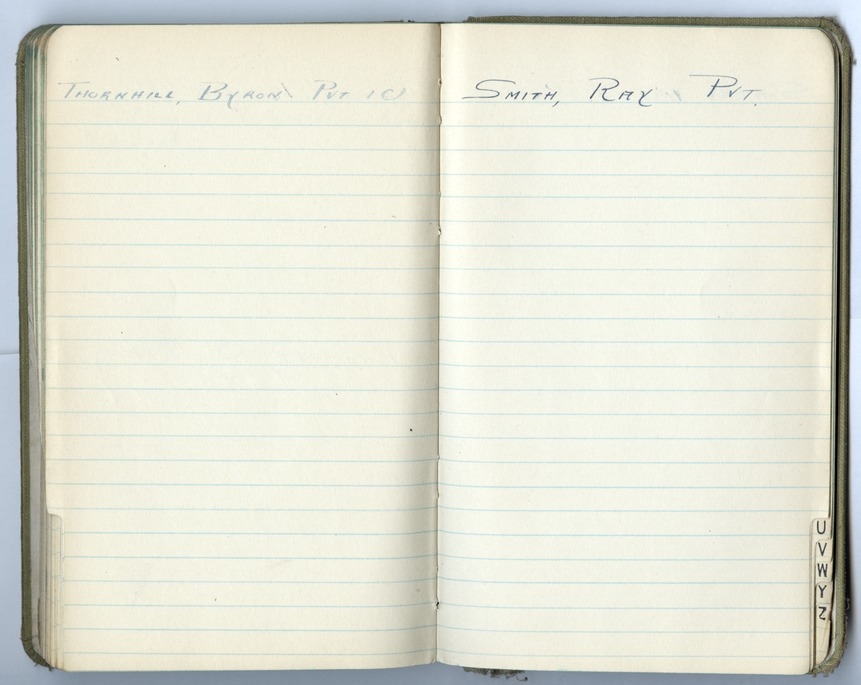 Thornhill, Byron Pvt
Smith, Ray Pvt.
U
V
W
Y
Z